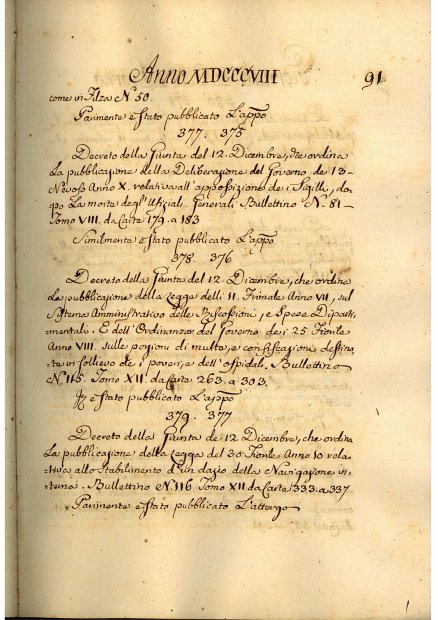 Anno MDCCCVIII
91
come in Filza N. 50.
Parimente è stato pubblicato l'appõ
377. 375
Decreto della Giunta del 12. Dicembre, che ordina
la pubblicazione della Deliberazione del Governo de 13
Nevoso Anno X. relativa all'apposizione de i Sigilli, do-
po la morte degl'Ufiziali Generali. Bullettino N. 81
Tomo VIII. da Carte 179. a 183
Similmente è stato pubblicato l'appõ
378. 376
Decreto della Giunta del 12. Dicembre, che ordina
la pubblicazione della Legge delli 11. Frimale Anno VII, sul
Sistema Amministrativo delle Riscossioni, e Spese Diparti-
mentali. E dell'Ordinanza del Governo de i 25 Fiorile
Anno VIII. sulle pozioni di multe, e confiscazioni destina-
te in sollievo de i poveri, e dell'ospidali. Bullettino
N. 115. Tomo XII. da Carte 263. a 303.
E è stato pubblicato l'appõ
379. 377
Decreto della Giunta de 12. Dicembre, che ordina
la pubblicazione della Legge del 30 Fiorile Anno 10 rela-
tiva allo Stabilimento d'un dazio della Navigazione in-
terna. Bullettino N. 116 Tomo XII da Carte 333. a 337.
Parimente è stato pubblicato l'attergo